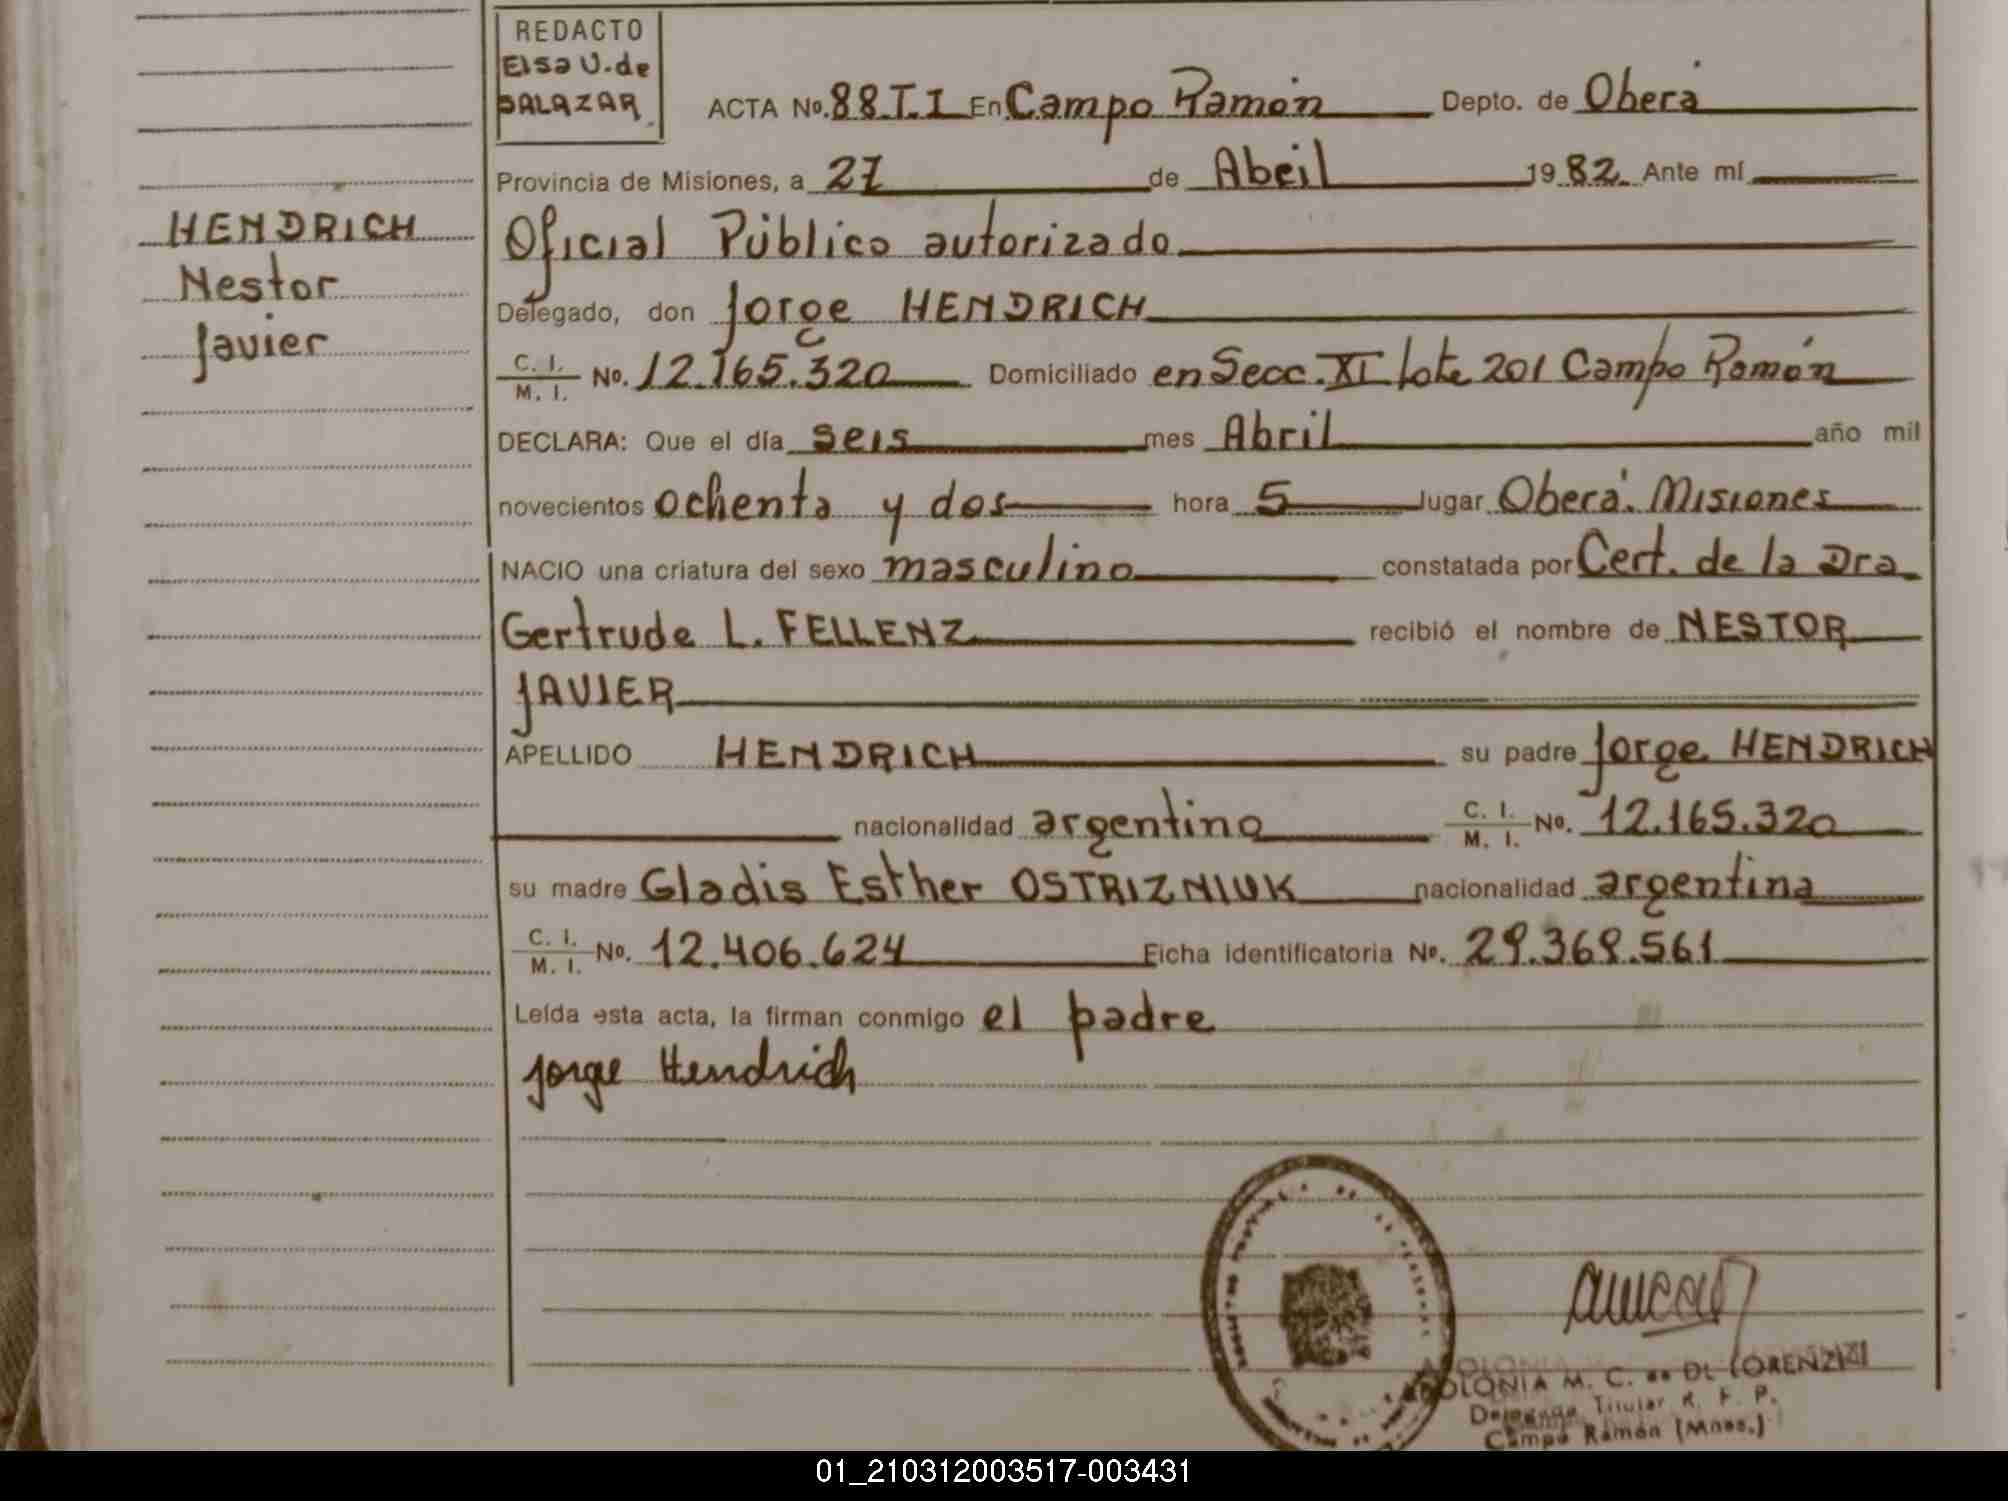 REDACTO
Elsa U. de
SALAZAR
ACTA No. 88 T.I En Campo Ramón Depto. de Oberá
Provincia de Misiones, a 27 de Abril 1982. Ante mí
HENDRICH
Nestor
Javier
Oficial Público autorizado
Delegado, don Jorge HENDRICH
C. I.
M. I. No. 12.165.320 Domiciliado en Secc. XI Lote 201 Campo Ramón
DECLARA: Que el día seis mes Abril año mil
novecientos ochenta y dos hora 5 lugar Oberá. Misiones
NACIO una criatura del sexo masculino constatada por Cert. de la Dra
Gertrude L. FELLENZ recibió el nombre de NESTOR
JAVIER
APELLIDO HENDRICH su padre Jorge HENDRICH
nacionalidad argentino C. I. M. I. No. 12.165.320
su madre Gladis Esther OSTRIZNIUK nacionalidad argentina
C. I.
M. I. No. 12.406.624 Ficha identificatoria No. 29.369.561
Leída esta acta, la firman conmigo el padre
Jorge Hendrich
APOLONIA M. C. de DI LORENZI
Delegada Titular R. P. P.
Campo Ramón (Mnes.)
01_210312003517-003431